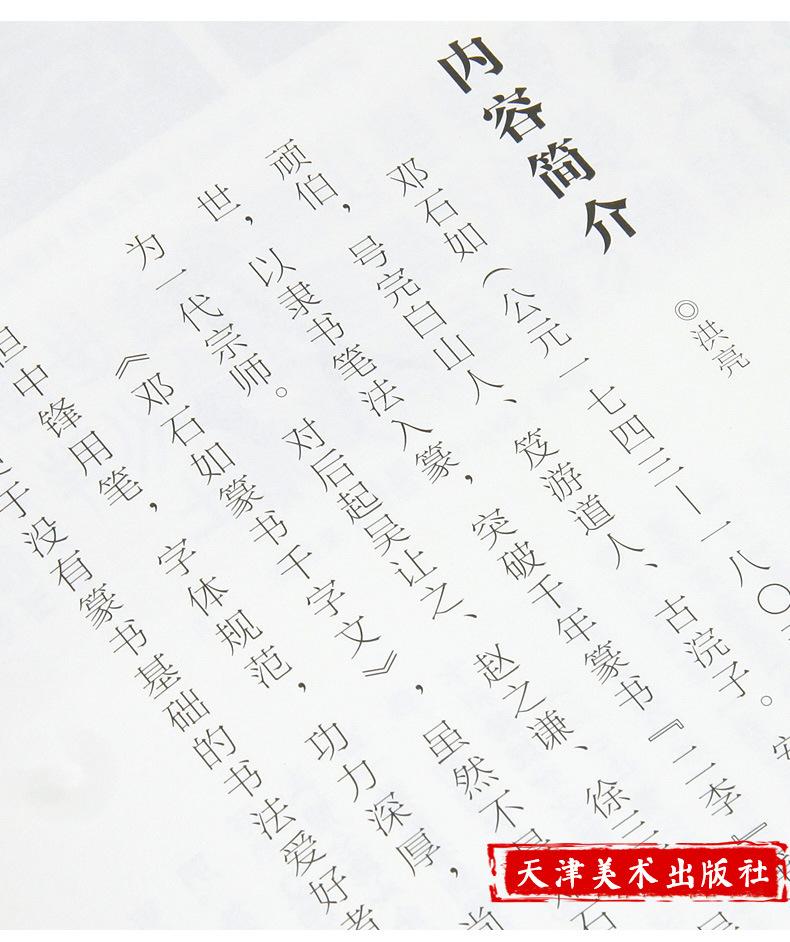 内容简介
◎洪亮
邓石如（公元一七四三—一八〇
顽伯，号完白山人、笈游道人、古浣子。安
世，以隶书笔法入篆，突破千年篆书『二李』
为一代宗师。对后起吴让之、赵之谦、徐三
《邓石如篆书千字文》，虽然不是
但中锋用笔，字体规范，功力深厚，尚
于没有篆书基础的书法爱好者
天津美术出版社